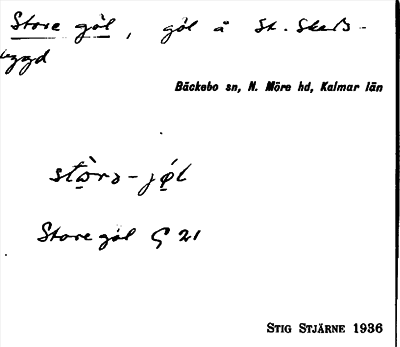 Store göl, göl å St. Skeds-
bygd
Bäckebo sn, N. Möre hd, Kalmar län
Store göl G 21
STIG STJÄRNE 1936